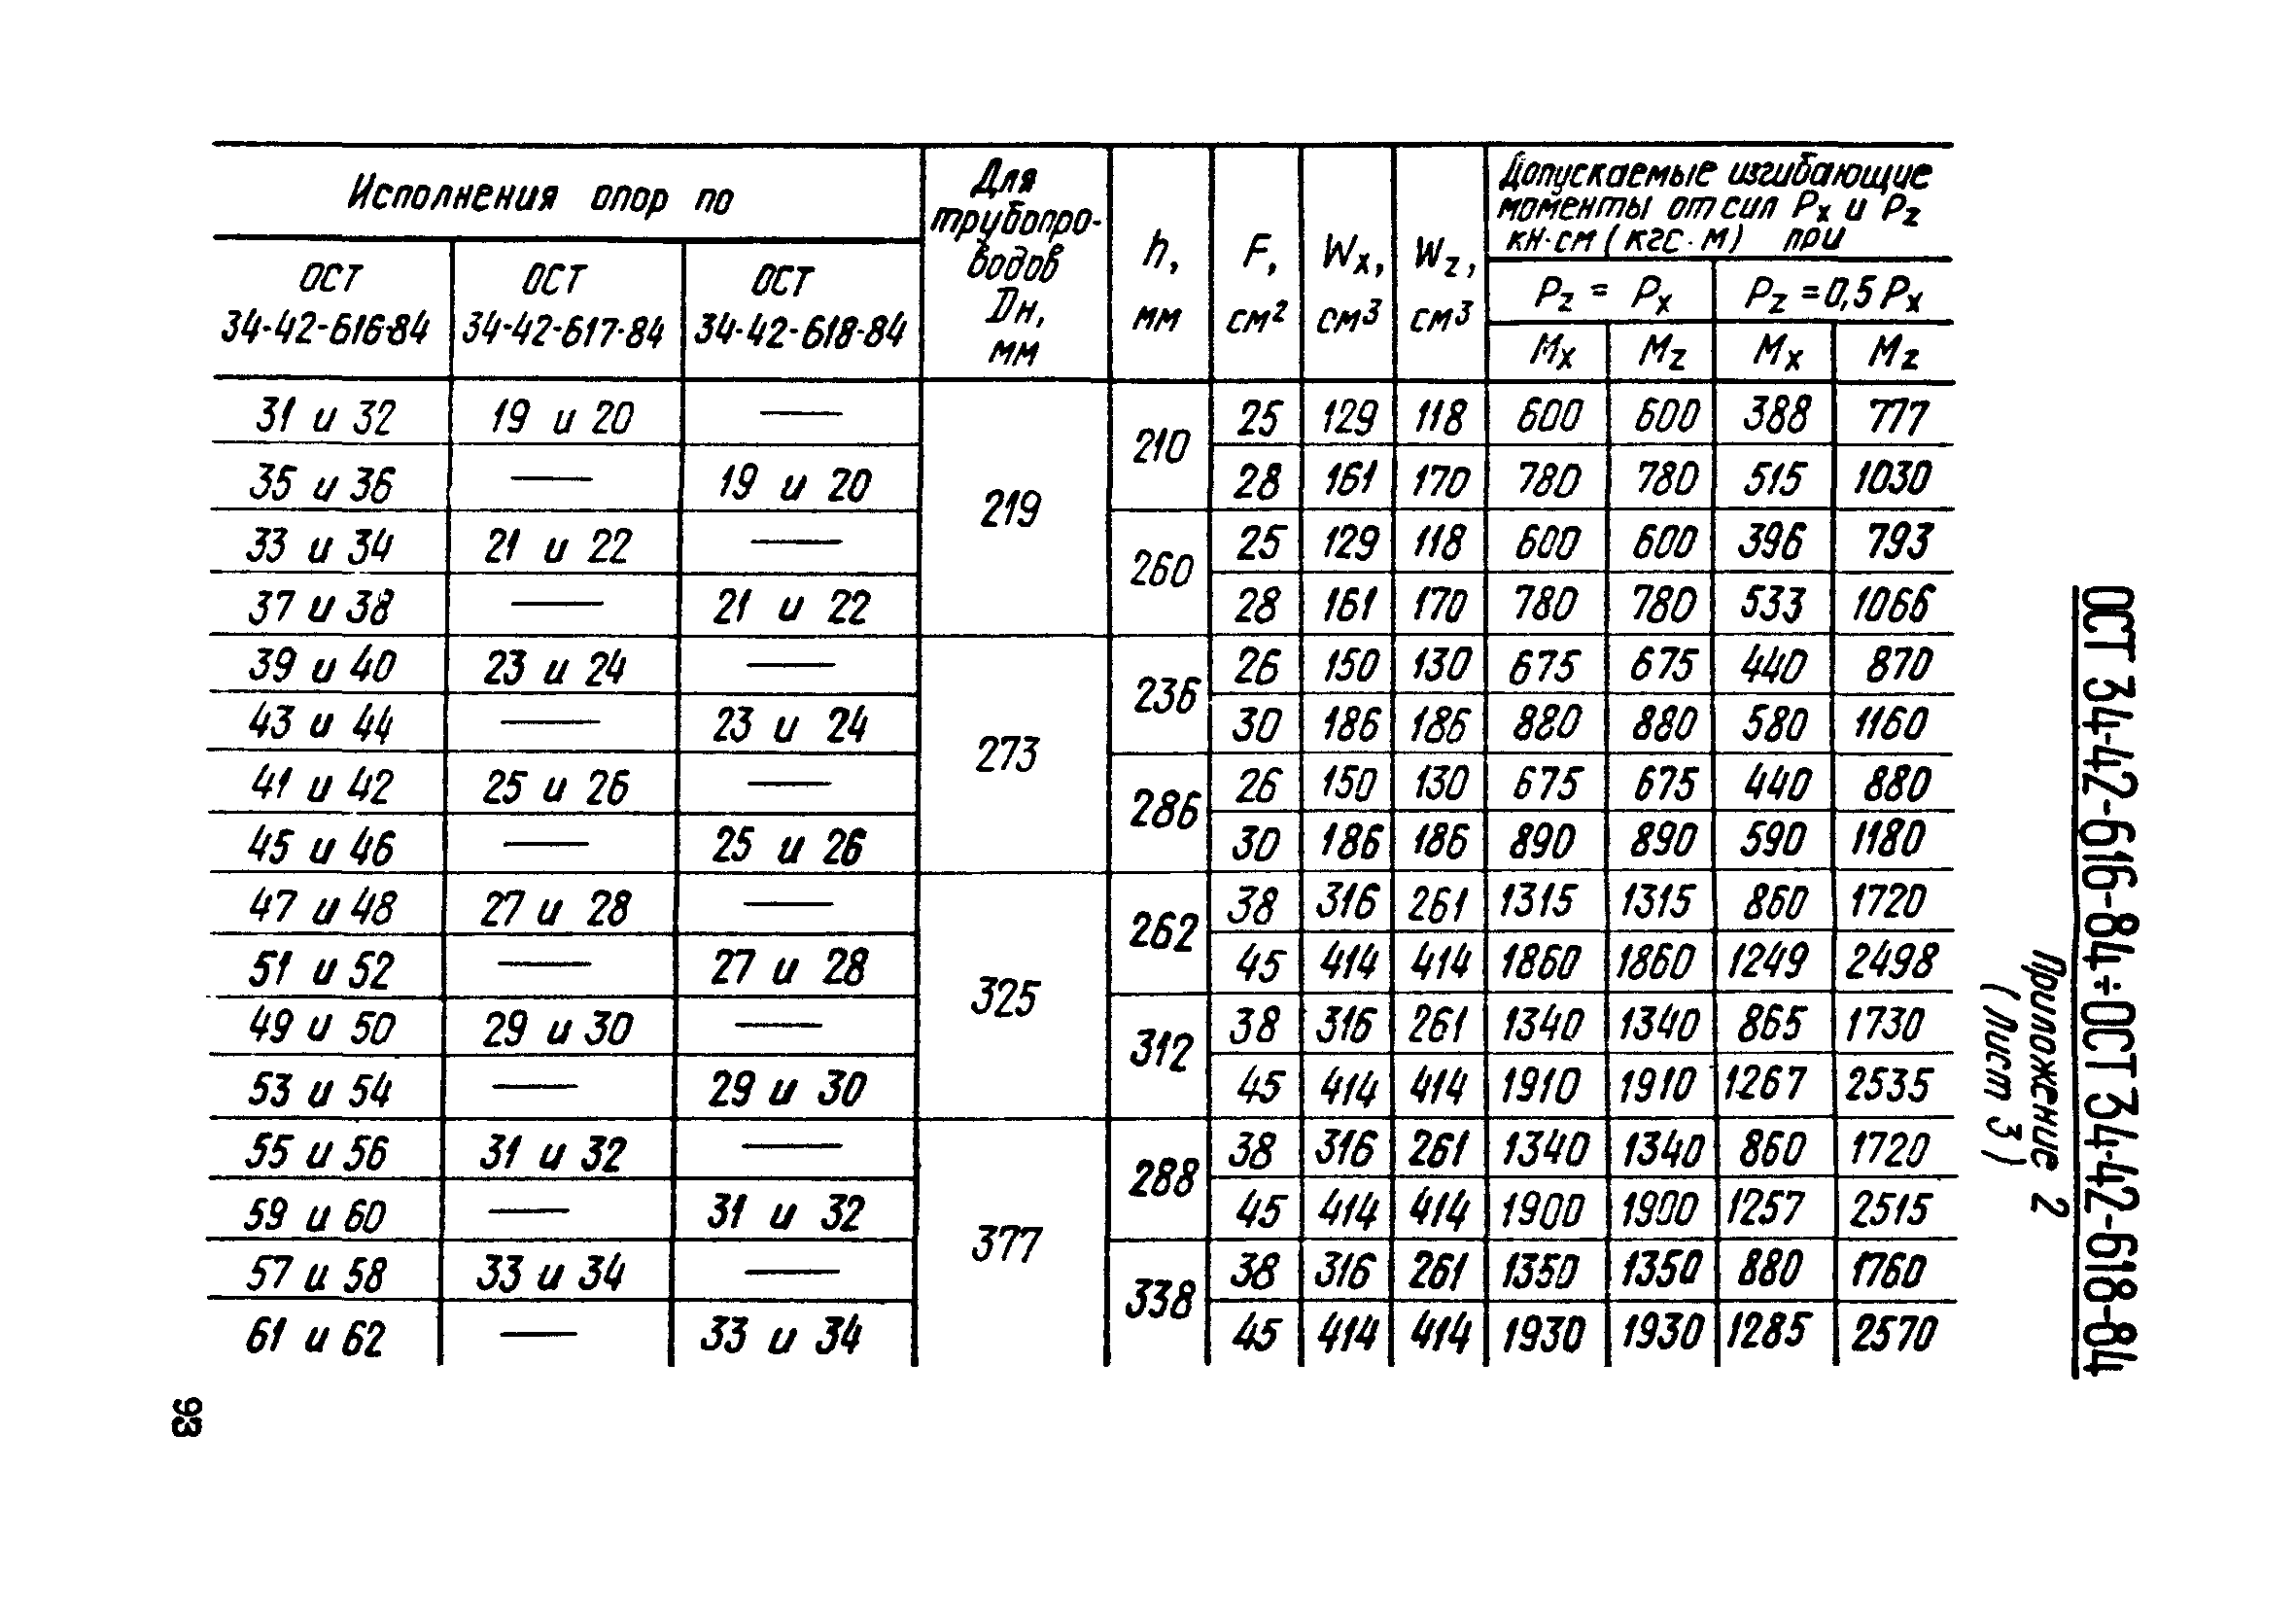 ОСТ 34-42-616-84÷ОСТ 34-42-618-84
Приложение 2
(Лист 3)
Исполнения опор по | Для трубопро-водов Dн, мм | h, мм | F, см² | Wx, см³ | Wz, см³ | Допускаемые изгибающие моменты от сил Px и Pz кн·см (кгс·м) при
ОСТ 34-42-616-84 | ОСТ 34-42-617-84 | ОСТ 34-42-618-84 | Pz = Px | Pz = 0,5 Px
Mx | Mz | Mx | Mz
31 и 32 | 19 и 20 | — | 219 | 210 | 25 | 129 | 118 | 600 | 600 | 388 | 777
35 и 36 | — | 19 и 20 | 28 | 161 | 170 | 780 | 780 | 515 | 1030
33 и 34 | 21 и 22 | — | 260 | 25 | 129 | 118 | 600 | 600 | 396 | 793
37 и 38 | — | 21 и 22 | 28 | 161 | 170 | 780 | 780 | 533 | 1066
39 и 40 | 23 и 24 | — | 273 | 236 | 26 | 150 | 130 | 675 | 675 | 440 | 870
43 и 44 | — | 23 и 24 | 30 | 186 | 186 | 880 | 880 | 580 | 1160
41 и 42 | 25 и 26 | — | 286 | 26 | 150 | 130 | 675 | 675 | 440 | 880
45 и 46 | — | 25 и 26 | 30 | 186 | 186 | 890 | 890 | 590 | 1180
47 и 48 | 27 и 28 | — | 325 | 262 | 38 | 316 | 261 | 1315 | 1315 | 860 | 1720
51 и 52 | — | 27 и 28 | 45 | 414 | 414 | 1860 | 1860 | 1249 | 2498
49 и 50 | 29 и 30 | — | 312 | 38 | 316 | 261 | 1340 | 1340 | 865 | 1730
53 и 54 | — | 29 и 30 | 45 | 414 | 414 | 1910 | 1910 | 1267 | 2535
55 и 56 | 31 и 32 | — | 377 | 288 | 38 | 316 | 261 | 1340 | 1340 | 860 | 1720
59 и 60 | — | 31 и 32 | 45 | 414 | 414 | 1900 | 1900 | 1257 | 2515
57 и 58 | 33 и 34 | — | 338 | 38 | 316 | 261 | 1350 | 1350 | 880 | 1760
61 и 62 | — | 33 и 34 | 45 | 414 | 414 | 1930 | 1930 | 1285 | 2570
93